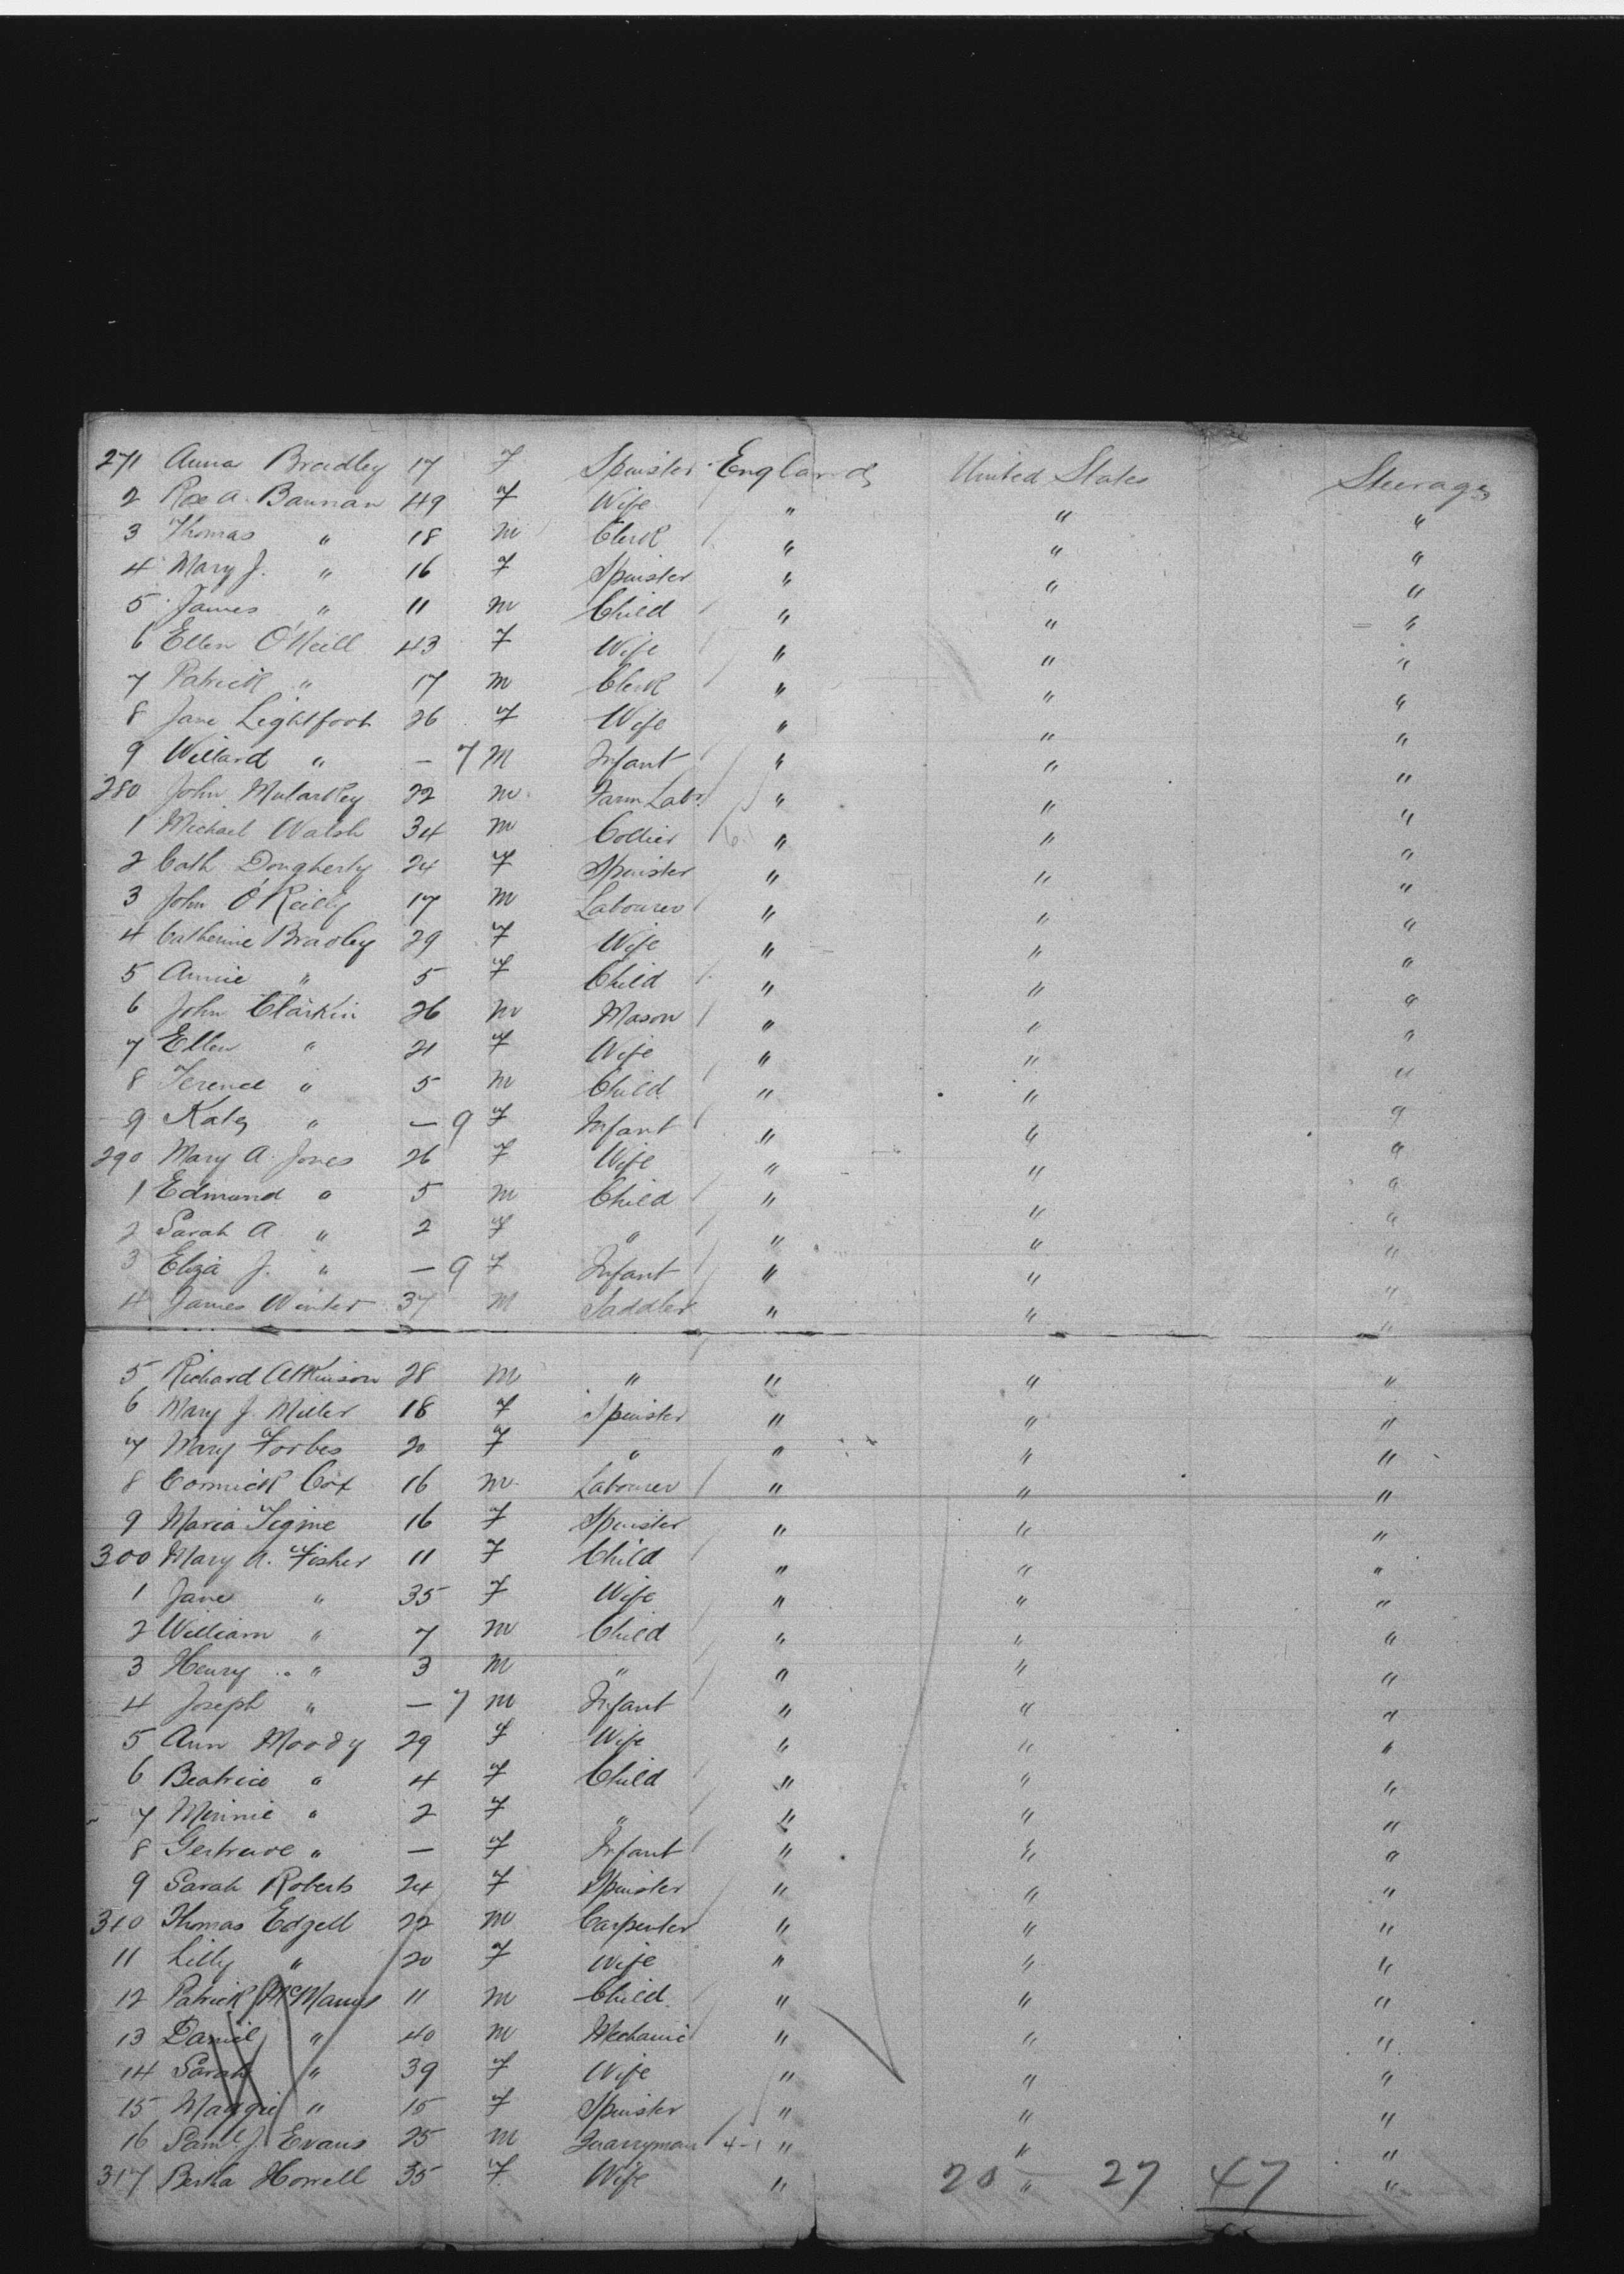 271 Anna Bradley 17 F Spinster England United States Steerage
2 Rose A. Bannan 49 F Wife " " "
3 Thomas " 18 M Clerk " " "
4 Mary J. " 16 F Spinster " " "
5 James " 11 M Child " " "
6 Ellen O'Neill 43 F Wife " " "
7 Patrick " 17 M Clerk " " "
8 Jane Lightfoot 26 F Wife " " "
9 Willard " — 7 M Infant " " "
280 John Mularkey 22 M Farm Labr " " "
1 Michael Walsh 34 M Collier " " "
2 Cath Dougherty 24 F Spinster " " "
3 John O'Reilly 17 M Labourer " " "
4 Catherine Bradley 29 F Wife " " "
5 Annie " 5 F Child " " "
6 John Clarkin 26 M Mason " " "
7 Ellen " 21 F Wife " " "
8 Terence " 5 M Child " " "
9 Katy " — 9 F Infant " " "
290 Mary A. Jones 26 F Wife " " "
1 Edmund " 5 M Child " " "
2 Sarah A " 2 F " " " "
3 Eliza J. " — 9 F Infant " " "
4 James Winter 37 M Saddler " " "
5 Richard Atkinson 28 M " " " "
6 Mary J. Miller 18 F Spinster " " "
7 Mary Forbes 20 F " " " "
8 Cormick Cox 16 M Labourer " " "
9 Maria 16 F Spinster " " "
300 Mary A. Fisher 11 F Child " " "
1 Jane " 35 F Wife " " "
2 William " 7 M Child " " "
3 Henry " 3 M " " " "
4 Joseph " — 7 M Infant " " "
5 Ann Moody 29 F Wife " " "
6 Beatrice " 4 F Child " " "
7 Minnie " 2 F " " " "
8 Gertrude " — F Infant " " "
9 Sarah Roberts 24 F Spinster " " "
310 Thomas Edgell 22 M Carpenter " " "
11 Lilly " 20 F Wife " " "
12 Patrick McManus 11 M Child " " "
13 Daniel " 40 M Mechanic " " "
14 Sarah " 39 F Wife " " "
15 Maggie " 15 F Spinster " " "
16 Saml. J. Evans 25 M Quarryman 4-1 " " "
317 Bertha Horrell 35 F Wife " 20 " 27 47 "